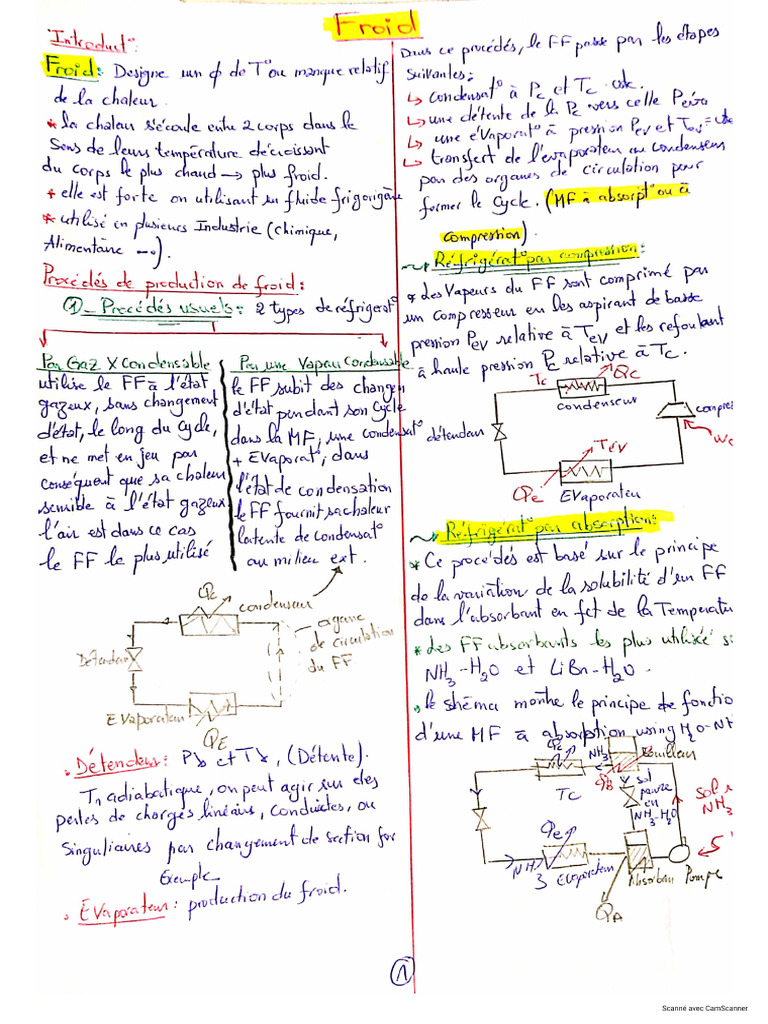 Froid
Introduct°:
Froid: Designe un ɸ de T° ou manque relatif
de la chaleur.
* la chaleur s'écoule entre 2 corps dans le
Sens de leurs température décroissant
du corps le plus chaud → plus froid.
* elle est forte en utilisant un fluide frigorigène
* utilisé en plusieurs Industrie (chimique,
Alimentaire ...).
Procédés de production de froid:
① - Procédés usuels: 2 types de réfrigérat°
Par Gaz X Condensable
utilise le FF à l'état
gazeux, sans changement
d'état, le long du Cycle,
et ne met en jeu par
conséquent que sa chaleur
sensible à l'état gazeux
l'air est dans ce cas
le FF le plus utilisé
Par une Vapeur Condensable
le FF subit des changem
d'état pendant son Cycle
dans la MF, une condensat°
+ Evaporat°, dans
l'état de condensation
le FF fournit sa chaleur
latente de condensat°
au milieu ext.
Qc
condenseur
organe
de circulation
du FF
Détendeur
Evaporateur
QE
• Détendeur: P↘ et T↘, (Détente).
Tn adiabatique, on peut agir sur des
pertes de charges linéairs, Conduites, ou
Singuliaires par changement de section for
Exemple
• Evaporateur: production du froid.
Dans ce procédés, le FF passe par les étapes
suivantes:
↳ condensat° à Pc et Tc cste.
↳ une détente de la Pc vers celle Péva
↳ une évaporat° à pression Pev et Tev = cste
↳ transfert de l'évaporateur au condenseur
par des organes de circulation pour
former le Cycle. (MF à absorpt° ou à
compression).
~ Réfrigérat° par compression:
* des Vapeurs du FF sont comprimé par
un compresseur en les aspirant de basse
pression Pev relative à Tev et les refoulant
à haute pression Pc relative à Tc.
Tc
Qc
condenseur
compres
détendeur
Wc
Tév
Qe
EVaporateur
~ Réfrigérat° par absorption:
* Ce procédés est basé sur le principe
de la variation de la solubilité d'un FF
dans l'absorbant en fct de la Températu
* des FF absorbants les plus utilisé s
NH3-H2O et LiBr-H2O.
• le shéma montre le principe de fonctio
d'une MF à absorption using H2O-NH
Qc
NH3
Bouilleur
Tc
QB
sol
pauvre
en
NH3-H2O
sol
NH3
Qe
NH3
Evaporateur
Absorbeur
Pompe
QA
①
Scanné avec CamScanner